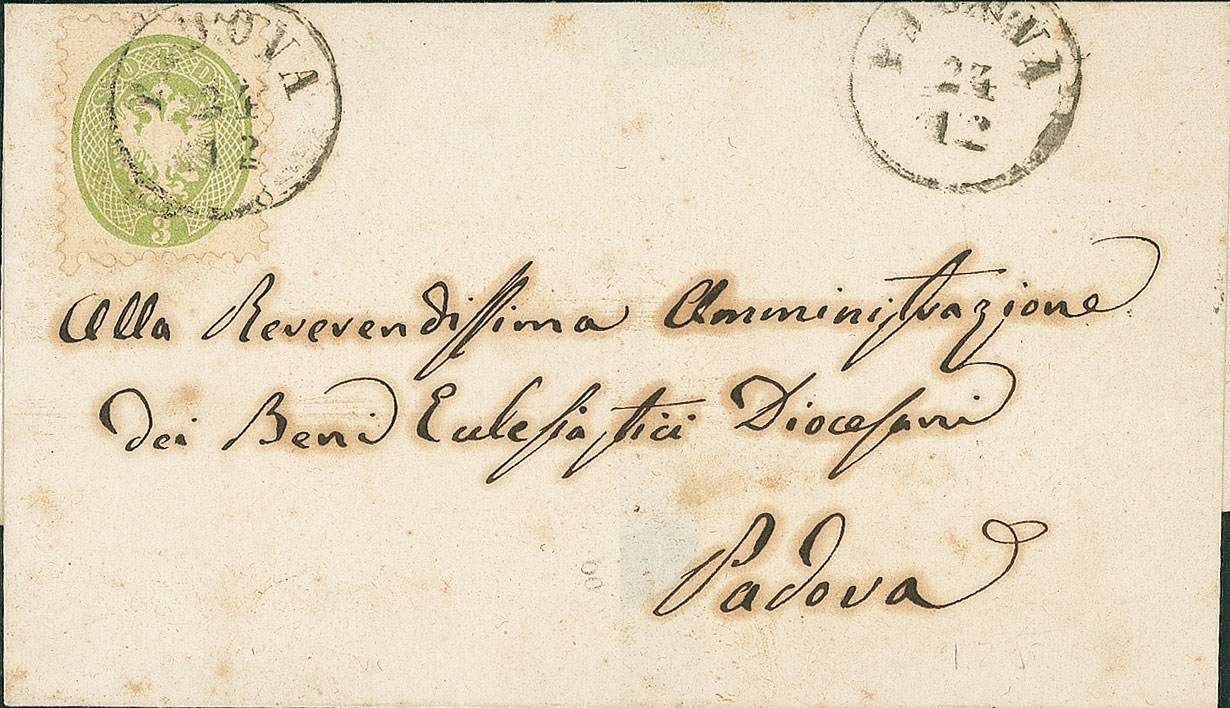 PADOVA
24
12
SOLDI
3
PADOVA
24
12
Alla Reverendissima Amministrazione
dei Beni Eclesiastici Diocesani
Padova
00